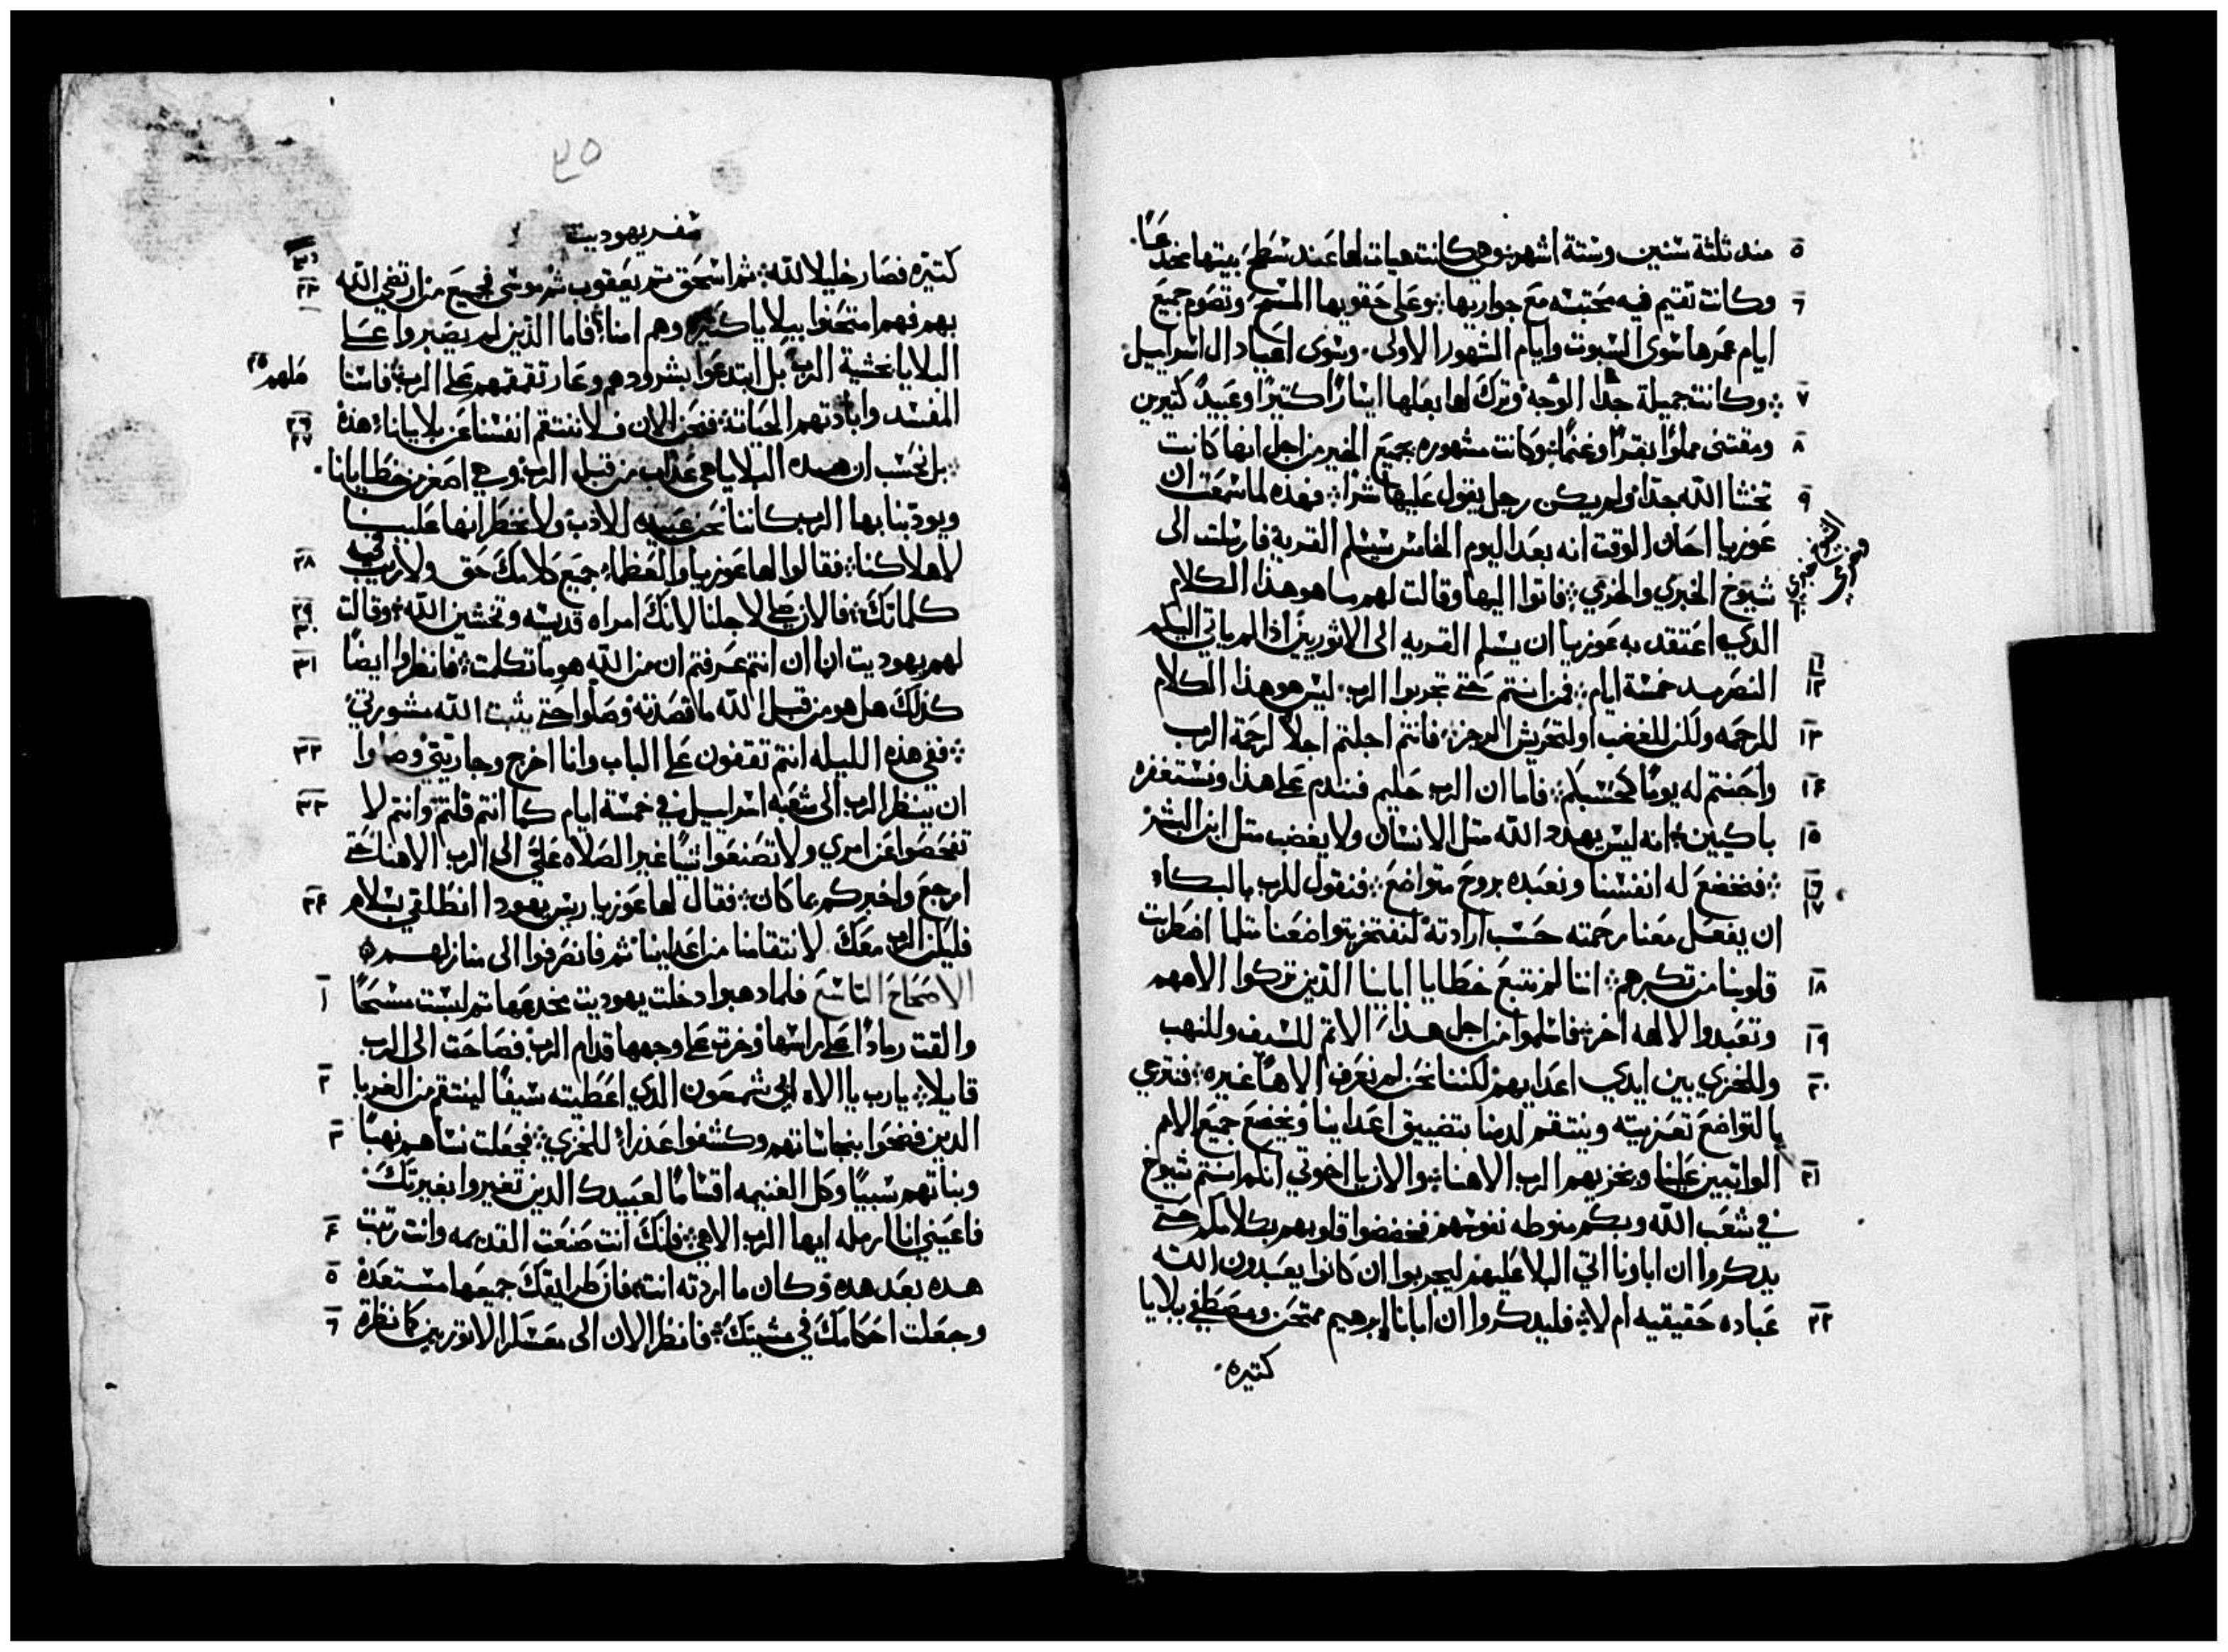 منه ثلثة سنين وستة اشهر وهي كانت هيات لها عند سطح بيتها مخدعًا.
وكانت تقيم فيه محتبسه مع جواريها وعلى حقويها المسح وتصوم جميع
ايام عمرها سوى السبوت وايام الشهور الاولى وسوى اعياد ال اسراييل
وكانت جميلة جدا الوجه وترك لها بعلها ايسارًا كتيرًا وعبيدً كتيرين
ومقتنى مملوًا بقرًا وغنمًا وكانت مشهوره بجميع الخير من اجل انها كانت
تخشا الله جدًا ولم يكن رجل يقول عليها شرًا فهذه لما سمعت ان
عوزيا احال الوقت انه بعد اليوم الخامس سيسلم القرية فارسلت الى
شيوخ الخبري والخرمي فاتوا اليها وقالت لهم ما هو هذا الكلام
الدي اعتقد به عوزيا ان يسلم القريه الى الاثوريين اذا لم ياتي اليكم
النصر مده خمسة ايام فمن انتم حتى تجربوا الرب ليس هو هذا الكلام
للرحمه ولكن للغضب اولتحريش الرجز فانتم اجلتم اجلاً لرحمة الرب
واحنتم له يومًا كحسبكم فاما ان الرب حليم فنندم على هذا ونستغفره
باكيين انه ليس يهدد الله متل الانسان ولا يغضب متل ابن البشر
فنخضع له انفسنا ونعبده بروح متواضع فنقول للرب بالبكاء
ان يفعل معنا رحمته حسب ارادته لنفتخر بتواضعنا متلما اضطربت
قلوبنا من تكبرهم اننا لم نتبع خطايا اباينا الذين تركوا الاههم
وتعبدوا لالهه اخر فاسلموا من اجل هذا الاتم للسيف وللنهب
وللخزي بين ايدي اعدايهم لكننا نحن لم نعرف الاهًا غيره فنترجي
بالتواضع تعزيته وينتقم لدمنا بتضييق اعداينا ويخضع جميع الامم
الواتبين علينا ويخزيهم الرب الاهنا والان يا اخوتي انكم انتم شيوخ
في شعب الله وبكم منوطه نفوسهم فخفضوا قلوبهم بكلامكم حتى
يدكروا ان اباونا اتي البلا عليهم ليجربوا ان كانوا يعبدون الله
عباده حقيقيه ام لا فليدكروا ان ابانا ابرهيم ممتحن ومصطفي ببلايا
كتيره
سفر يهوديت
كتيره فصار خليلا لله ثم اسحق تم يعقوب ثم موسى فجميع من ارتضي الله
بهم فهم امتحنوا ببلايا كتيره وهم امنا فاما الذين لم يصبروا على
البلايا بخشية الرب بل ابتدعوا بشرودهم وعار تقمقمهم على الرب فاسنا ملهم
المفسد وابادتهم الحياتة فنحن الان فلا ننتقم انفسنا عن بلايانا هذه
بل نحسب ان هده البلايا هي عذاب من قبل الرب وهي اصغر من خطايانا
ويودبنا بها الرب كاننا نحن عبيده للادب ولا نخطر انها علينا
لاهلاكنا فقالوا لها عوزيا والعظماء جميع كلامك حق ولا ريب في
كلماتك فالان صلي لاجلنا لانك امراه قديسه وتخشين الله وقالت
لهم يهوديت انا ان انتم عرفتم ان من الله هو ما تكلمت فانظروا ايضًا
كذلك هل هو من قبل الله ما قصدته وصلوا حتى يثبت الله مشورتي
ففي هذه الليله انتم تقفون على الباب وانا اخرج وجاريتي وصلوا
ان ينظر الرب الى شعبه اسراييل في خمسة ايام كما انتم قلتم وانتم لا
تفحصوا عن امري ولا تصنعوا شيًا غير الصلاه عليَّ الى الرب الاهنا حتى
ارجع واخبركم بما كان فقال لها عوزيا ريس يهودا انطلقي بسلام
فليكن الرب معك لانتقامنا من اعداينا ثم فانصرفوا الى منازلهم
الاصحاح التاسع فلما دهبوا دخلت يهوديت مخدعها تم لبست مسحًا
والقت رمادًا على راسها وخرت على وجهها قدام الرب فصاحت الى الرب
قايلا يا رب يا الاه ابي شمعون الدي اعطيته سيفًا لينتقم من الغربا
الدين فضحوا بنجاساتهم وكشفوا عذراء للخزي فجعلت نساهم نهبًا
وبناتهم سبيًا وكل الغنيمه اقسامًا لعبيدك الدين تغيروا بغيرتك
فاعيني انا ارمله ايها الرب الاهي فانك انت صنعت القديمه وانت رتبت
هده بعد هده وكان ما اردته انت فان طرايقك جميعها مستعدة
وجعلت احكامك في مشيتك فانظر الان الى معسكر الاثوريين كما نظرت